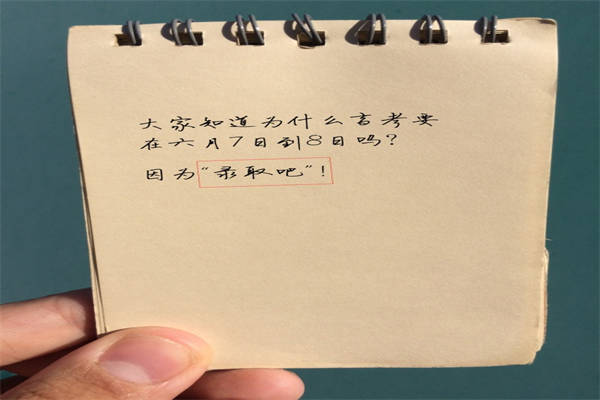 大家知道为什么高考要
在六月7日到8日吗?
因为“录取吧”!